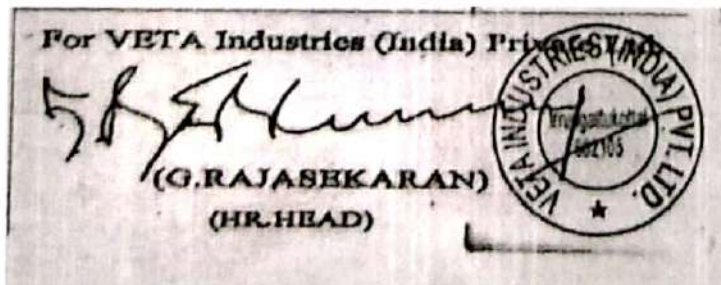 For VETA Industries (India) Private Ltd.
(G.RAJASEKARAN)
(HR.HEAD)
VETA INDUSTRIES (INDIA) PVT. LTD.
602105